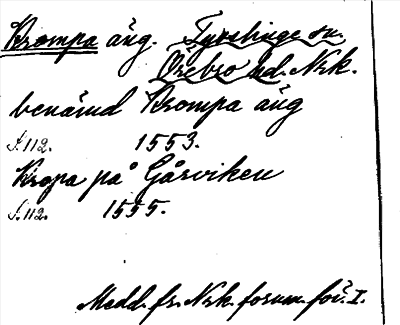 Krompa äng. Tysslinge sn.
Örebro hd. Nrk.
benämd Krompa äng
S. 112. 1553.
Kropa på Gårviken
S. 112. 1555.
Medd. fr. Nrk. fornm. för. I.